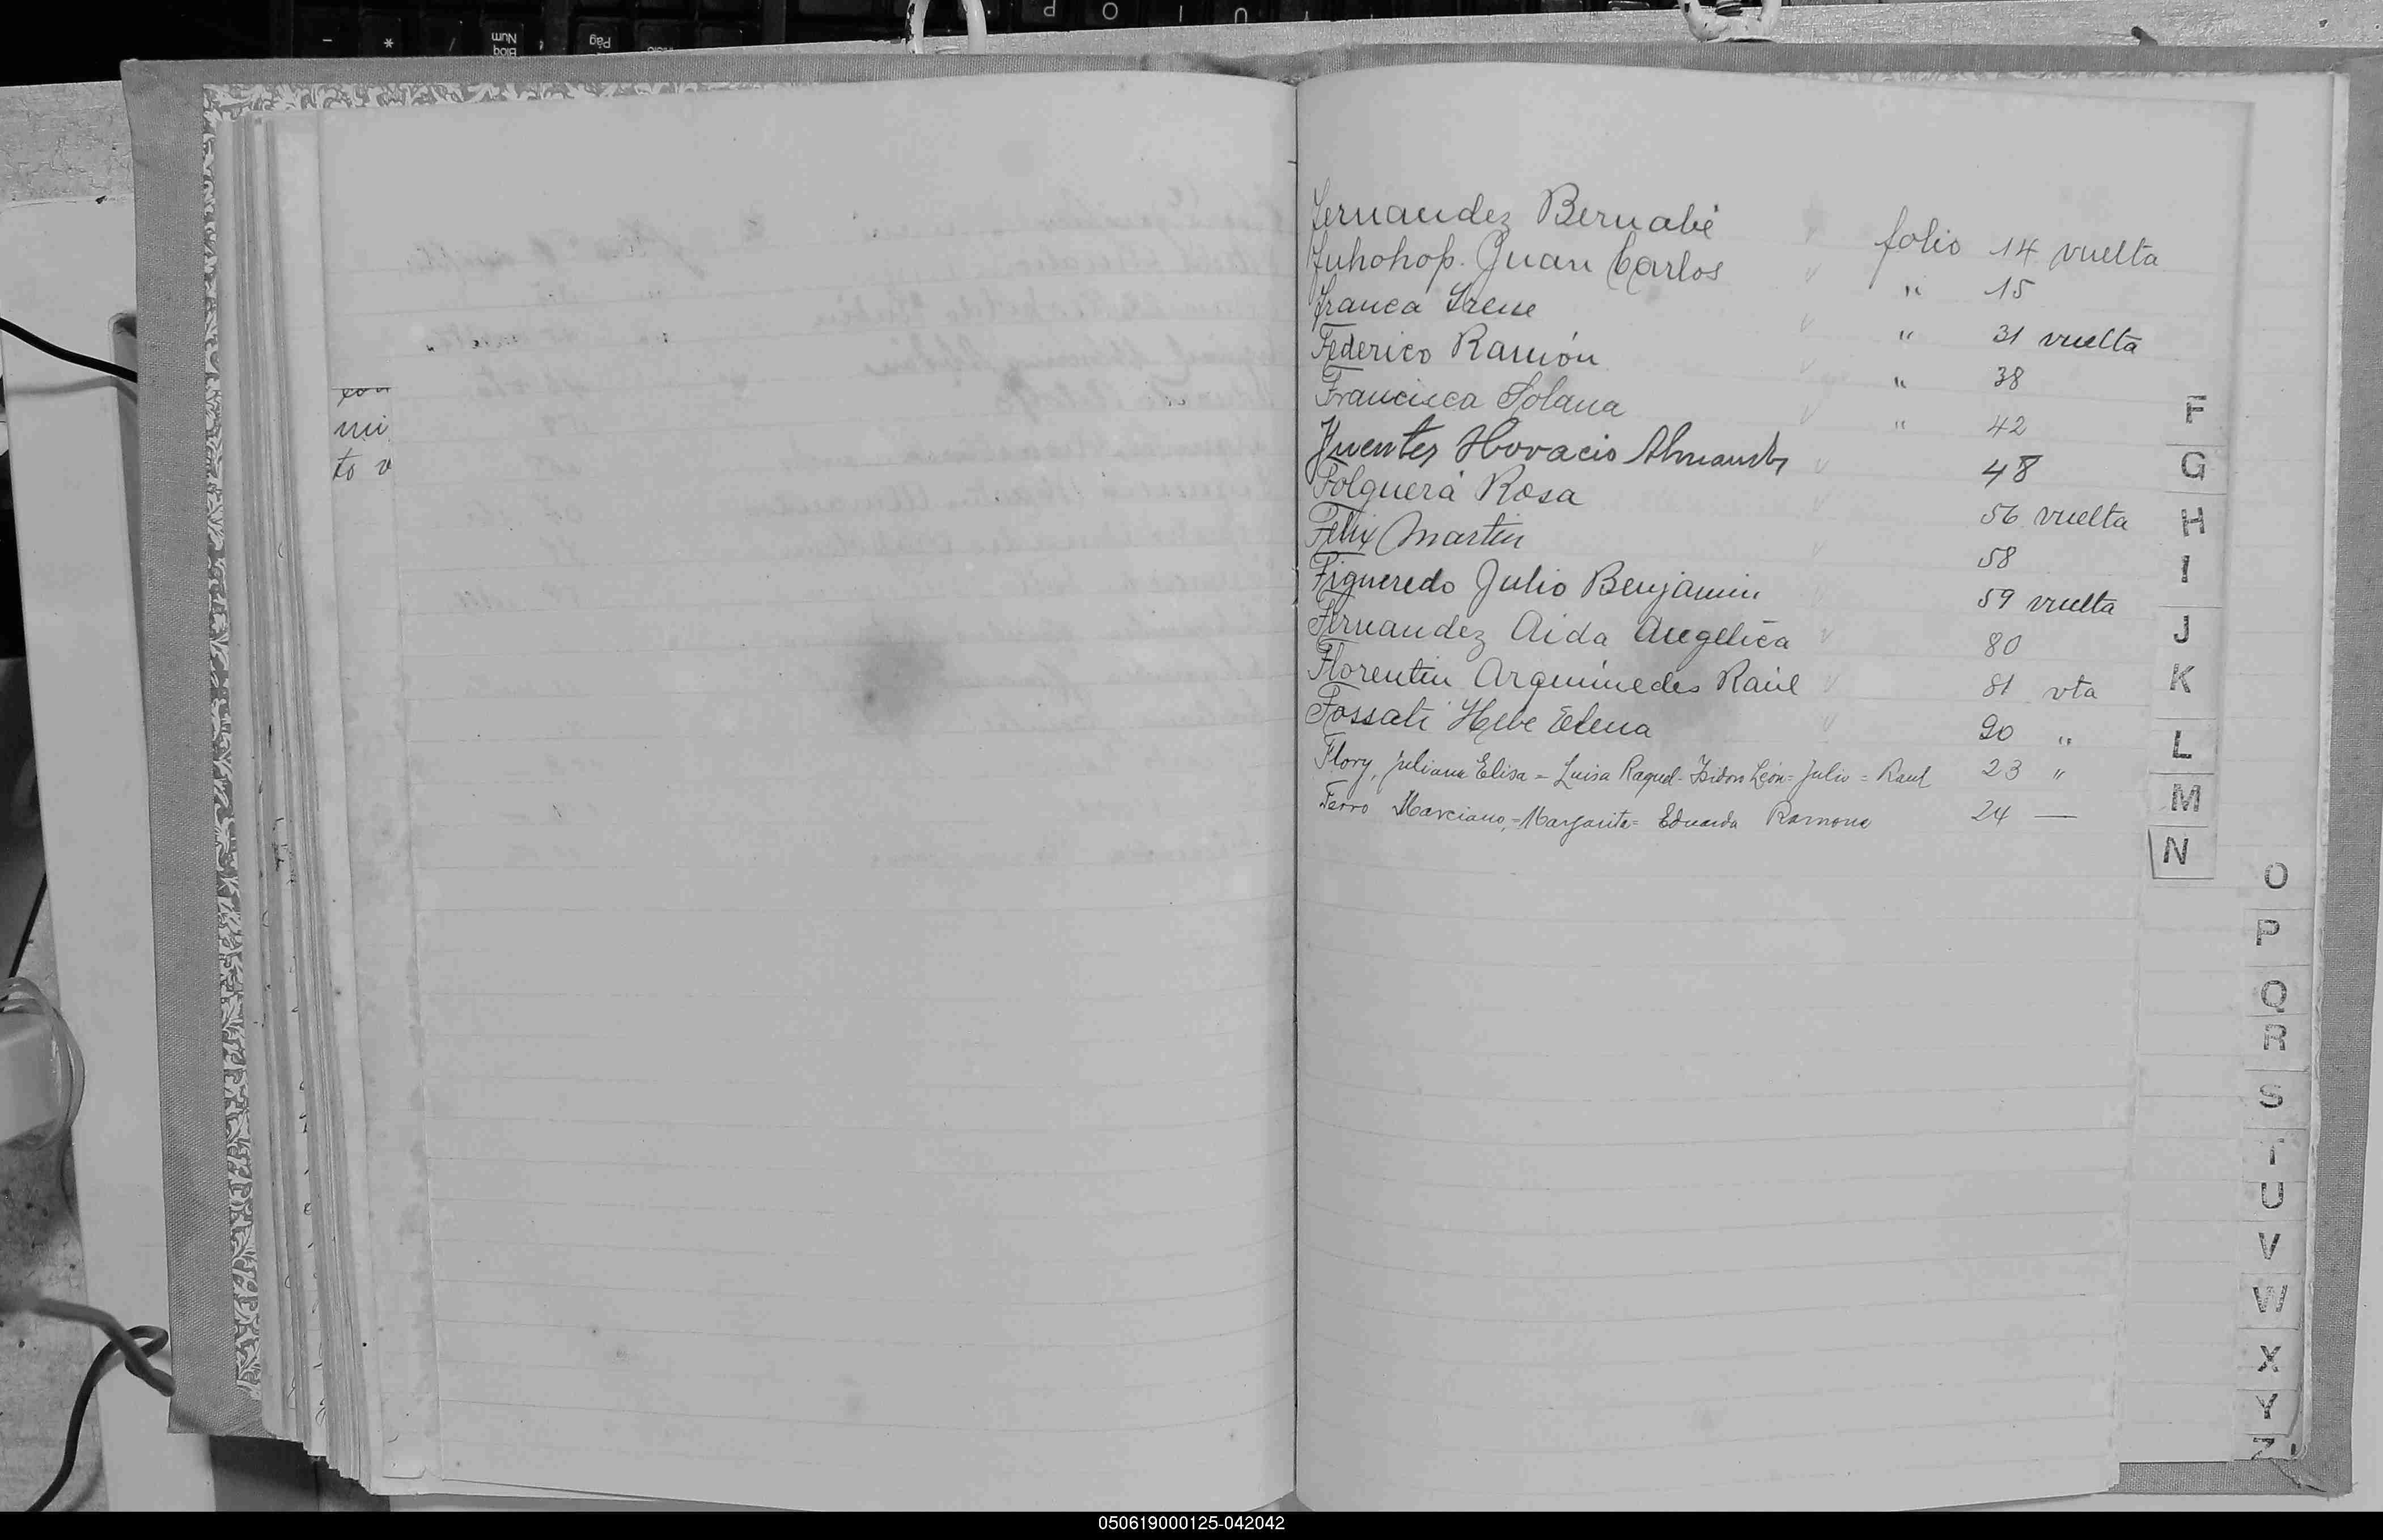 con
mi
to v
Fernandez Bernabé folio 14 vuelta
Juan Carlos " 15
Franca Irene " 31 vuelta
Federico Ramón " 38
Francisca Solana " 42
Fuentes Horacio 48
Folguerá Rosa 56 vuelta
Felix Martin 58
Figueredo Julio Benjamin 59 vuelta
Fernandez Aida Angelica 80
Florentin Arquimedes Raúl 81 vta
Fossati Hebe Elena 90 "
Flory, Juliana Elisa = Luisa Raquel - Isidro León = Julio = Raul 23 "
Ferro Marciano, = Margarita = Eduarda Ramona 24 —
F
G
H
I
J
K
L
M
N
O
P
Q
R
S
T
U
V
W
X
Y
Z
050619000125-042042